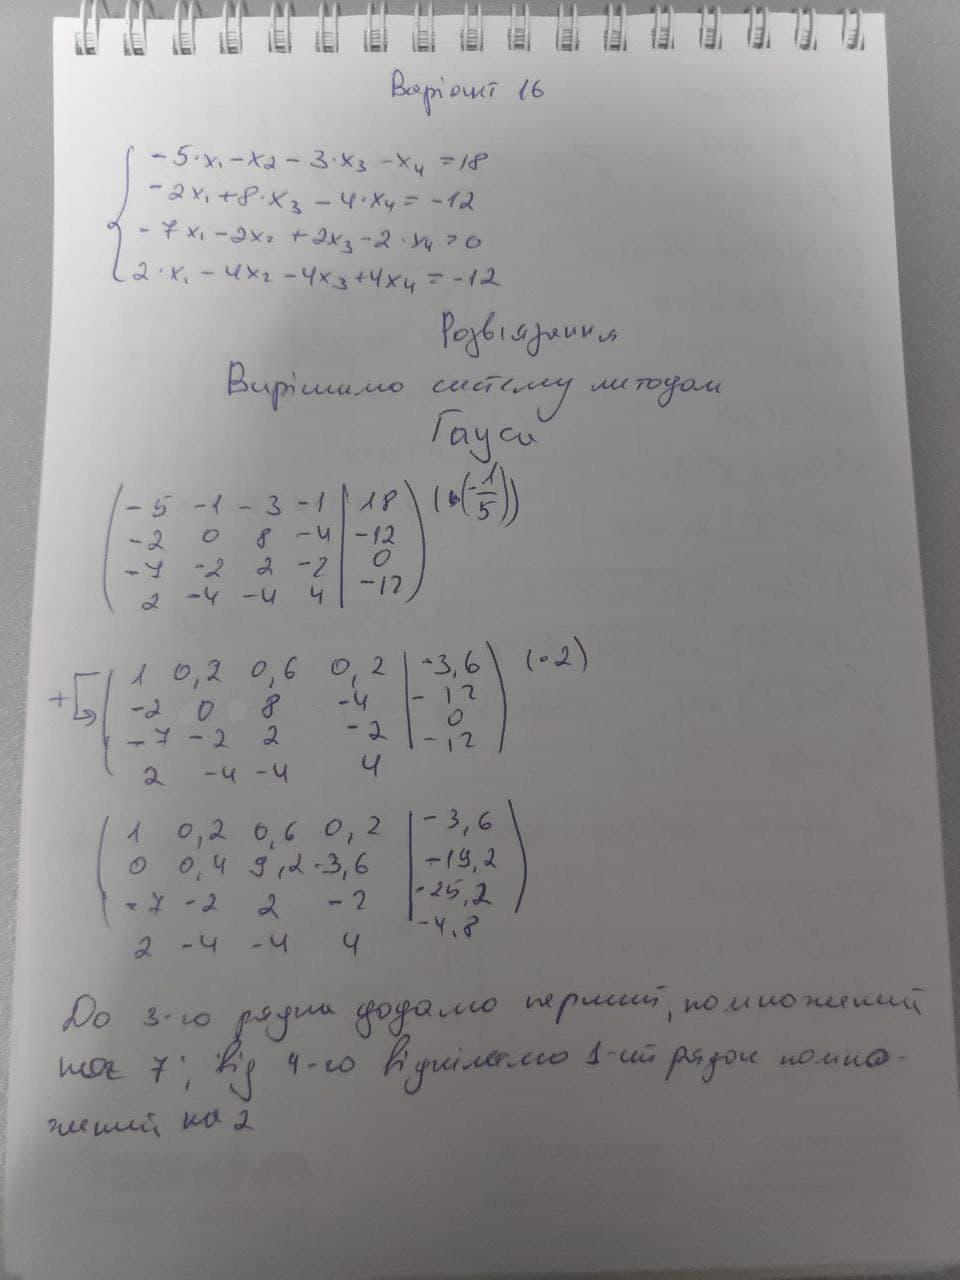 Варіант 16
-5·x₁-x₂-3·x₃-x₄=18
-2x₁+8·x₃-4·x₄=-12
-7x₁-2x₂+2x₃-2·x₄=0
2·x₁-4x₂-4x₃+4x₄=-12
Розвʼязання
Вирішимо систему методом
Гауса
-5 -1 -3 -1 | 18 (·(-1/5))
-2 0 8 -4 | -12
-7 -2 2 -2 | 0
2 -4 -4 4 | -12
+ 1 0,2 0,6 0,2 | -3,6 (·2)
-2 0 8 -4 | -12
-7 -2 2 -2 | 0
2 -4 -4 4 | -12
1 0,2 0,6 0,2 | -3,6
0 0,4 9,2 -3,6 | -19,2
-7 -2 2 -2 | -25,2
2 -4 -4 4 | -4,8
До 3-го рядка додамо перший, помножений
на 7; від 4-го віднімемо 1-ий рядок помно-
жений на 2